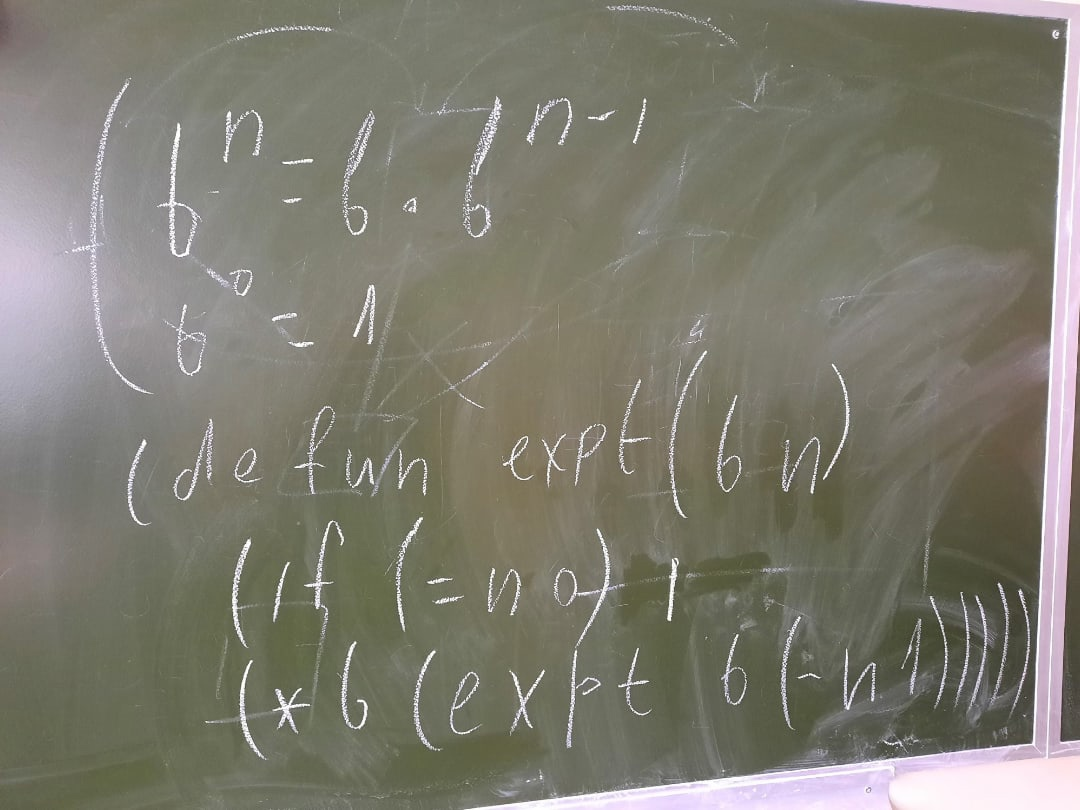 bⁿ = b · bⁿ⁻¹
b⁰ = 1
(defun expt (b n)
(if (= n 0) 1
(* b (expt b (- n 1)))))